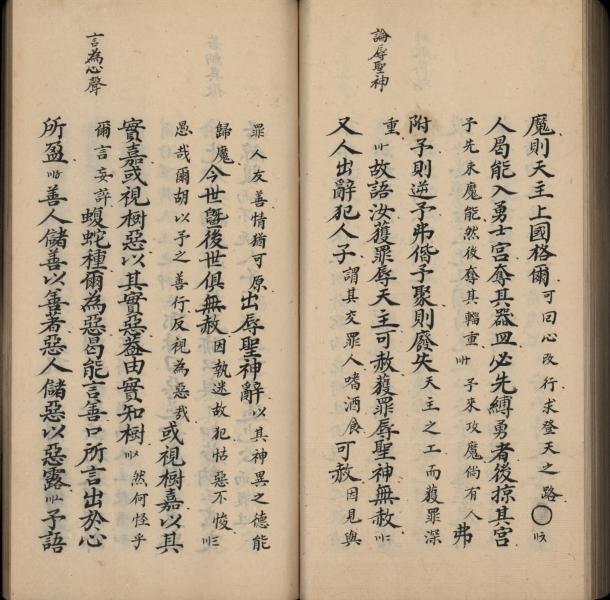 論辱聖神
魔則天主上國格爾可回心改行求登天之路〇〢〦
人曷能入勇士宮奪其器皿必先縛勇者後掠其宮
予先束魔能然後奪其輜重〢〩予來攻魔倘有人弗
附予則逆予弗偕予聚則廢失天主之工而獲罪深
重〣〸故語汝獲罪辱天主可赦獲罪辱聖神無赦
又人出辭犯人子謂其交罪人嗜酒食可赦因見與
罪人友善情猶可原出辱聖神辭以其神異之德能
歸魔今世曁後世俱無赦因執迷故犯怙惡不悛
愚哉爾胡以予之善行反視為惡哉或視樹嘉以其
實嘉或視樹惡以其實惡葢由實知樹然何怪乎
爾言妄誶蝮蛇種爾為惡曷能言善口所言出於心
所盈善人儲善以善者惡人儲惡以惡露予語
言為心聲